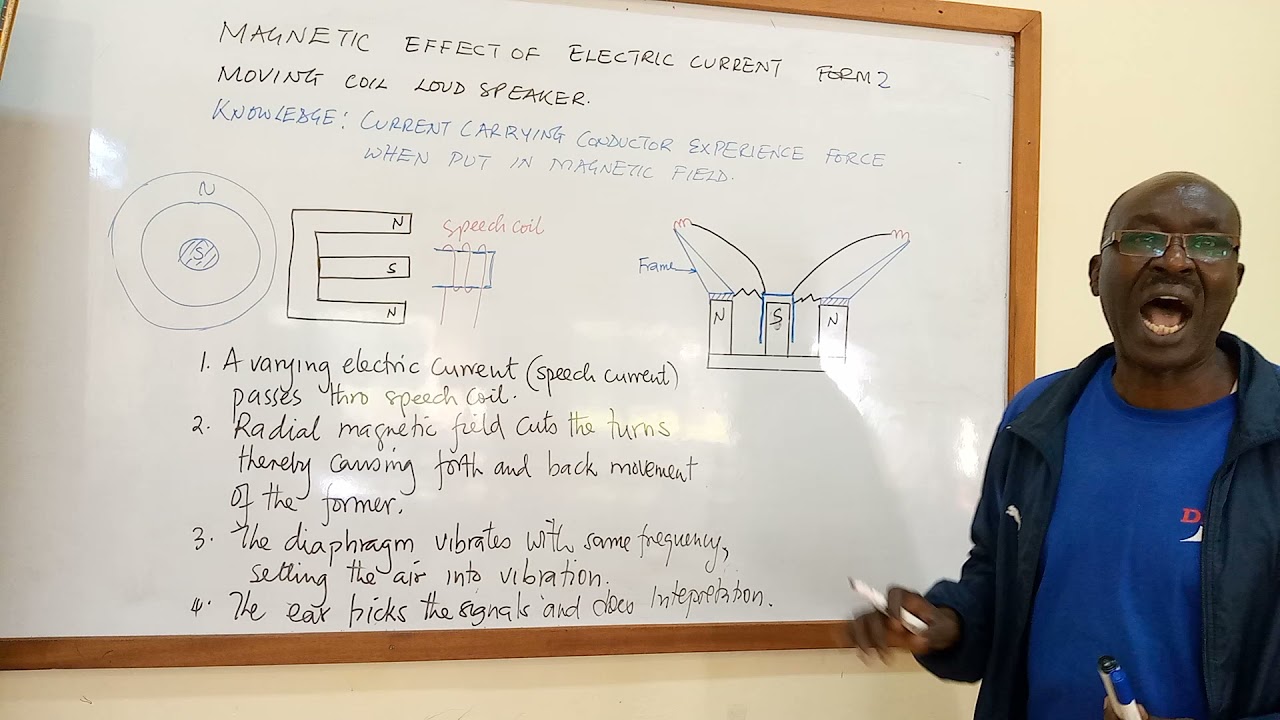 MAGNETIC EFFECT OF ELECTRIC CURRENT FORM 2
MOVING COIL LOUD SPEAKER.
KNOWLEDGE: CURRENT CARRYING CONDUCTOR EXPERIENCE FORCE
WHEN PUT IN MAGNETIC FIELD.
N
S
N
S
N
speech coil
Frame
N
S
N
1. A varying electric current (speech current)
passes thro speech coil.
2. Radial magnetic field cuts the turns
thereby causing forth and back movement
of the former.
3. The diaphragm vibrates with same frequency,
setting the air into vibration.
4. The ear picks the signals and does Intepretation.
D